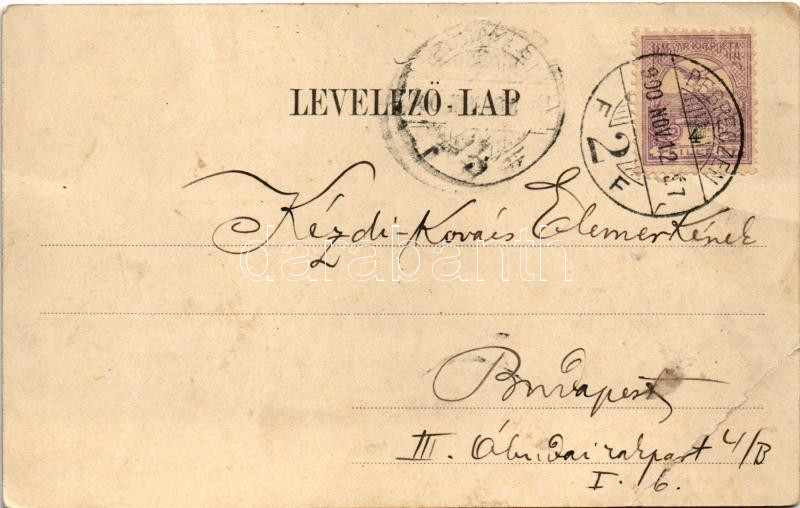 MAGYAR KIR. POSTA
DEBRECZEN
900 NOV 12
F 2 F
LEVELEZŐ-LAP
Kézdi-Kovács Elemérkének
darabanth
Budapest
III. Óbudai rakpart 4/B
I. 6.